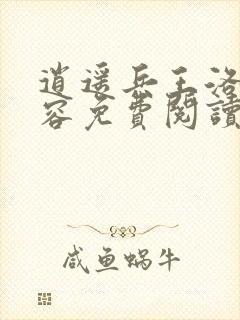 逍遥兵王洛
容免費閱讀
咸鱼蜗牛